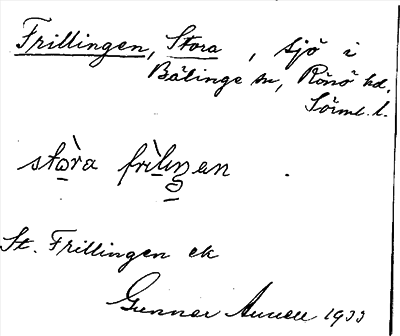 Frillingen, Stora, sjö i
Bälinge sn, Rönö hd.
Sörml. l.
stòra frìliŋan .
St. Frillingen ek
Gunnar Aurell 1933